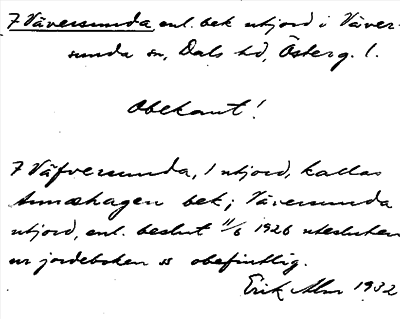 7 Väversunda, enl. bek utjord i Väver-
sunda sn, Dals hd, Österg. l.
Obekant!
7 Väfversunda, 1 utjord, kallas
hagen bek; Väversunda
utjord, enl. beslut 11/6 1926 utesluten
ur jordeboken ss obefintlig.
Erik Alm 1932